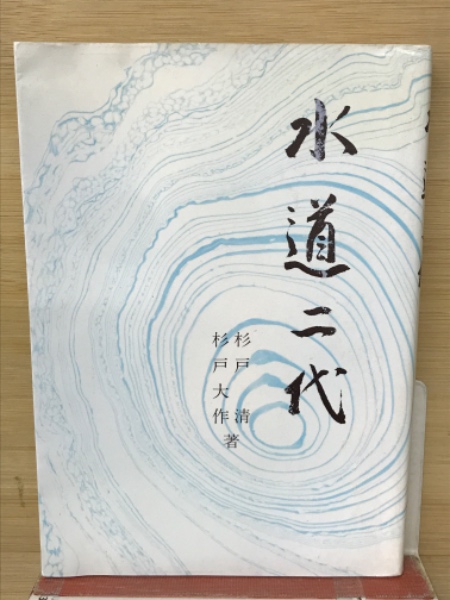 水道二代
杉戸 清
杉戸大作
著